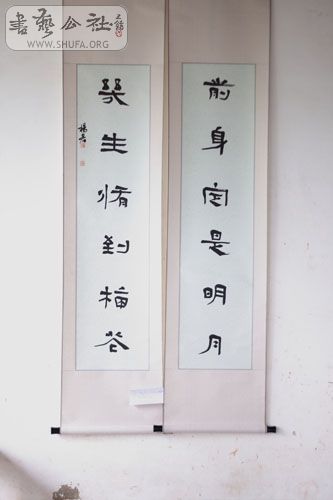 書藝公社
WWW.SHUFA.ORG
前身定是明月
幾生脩到梅花